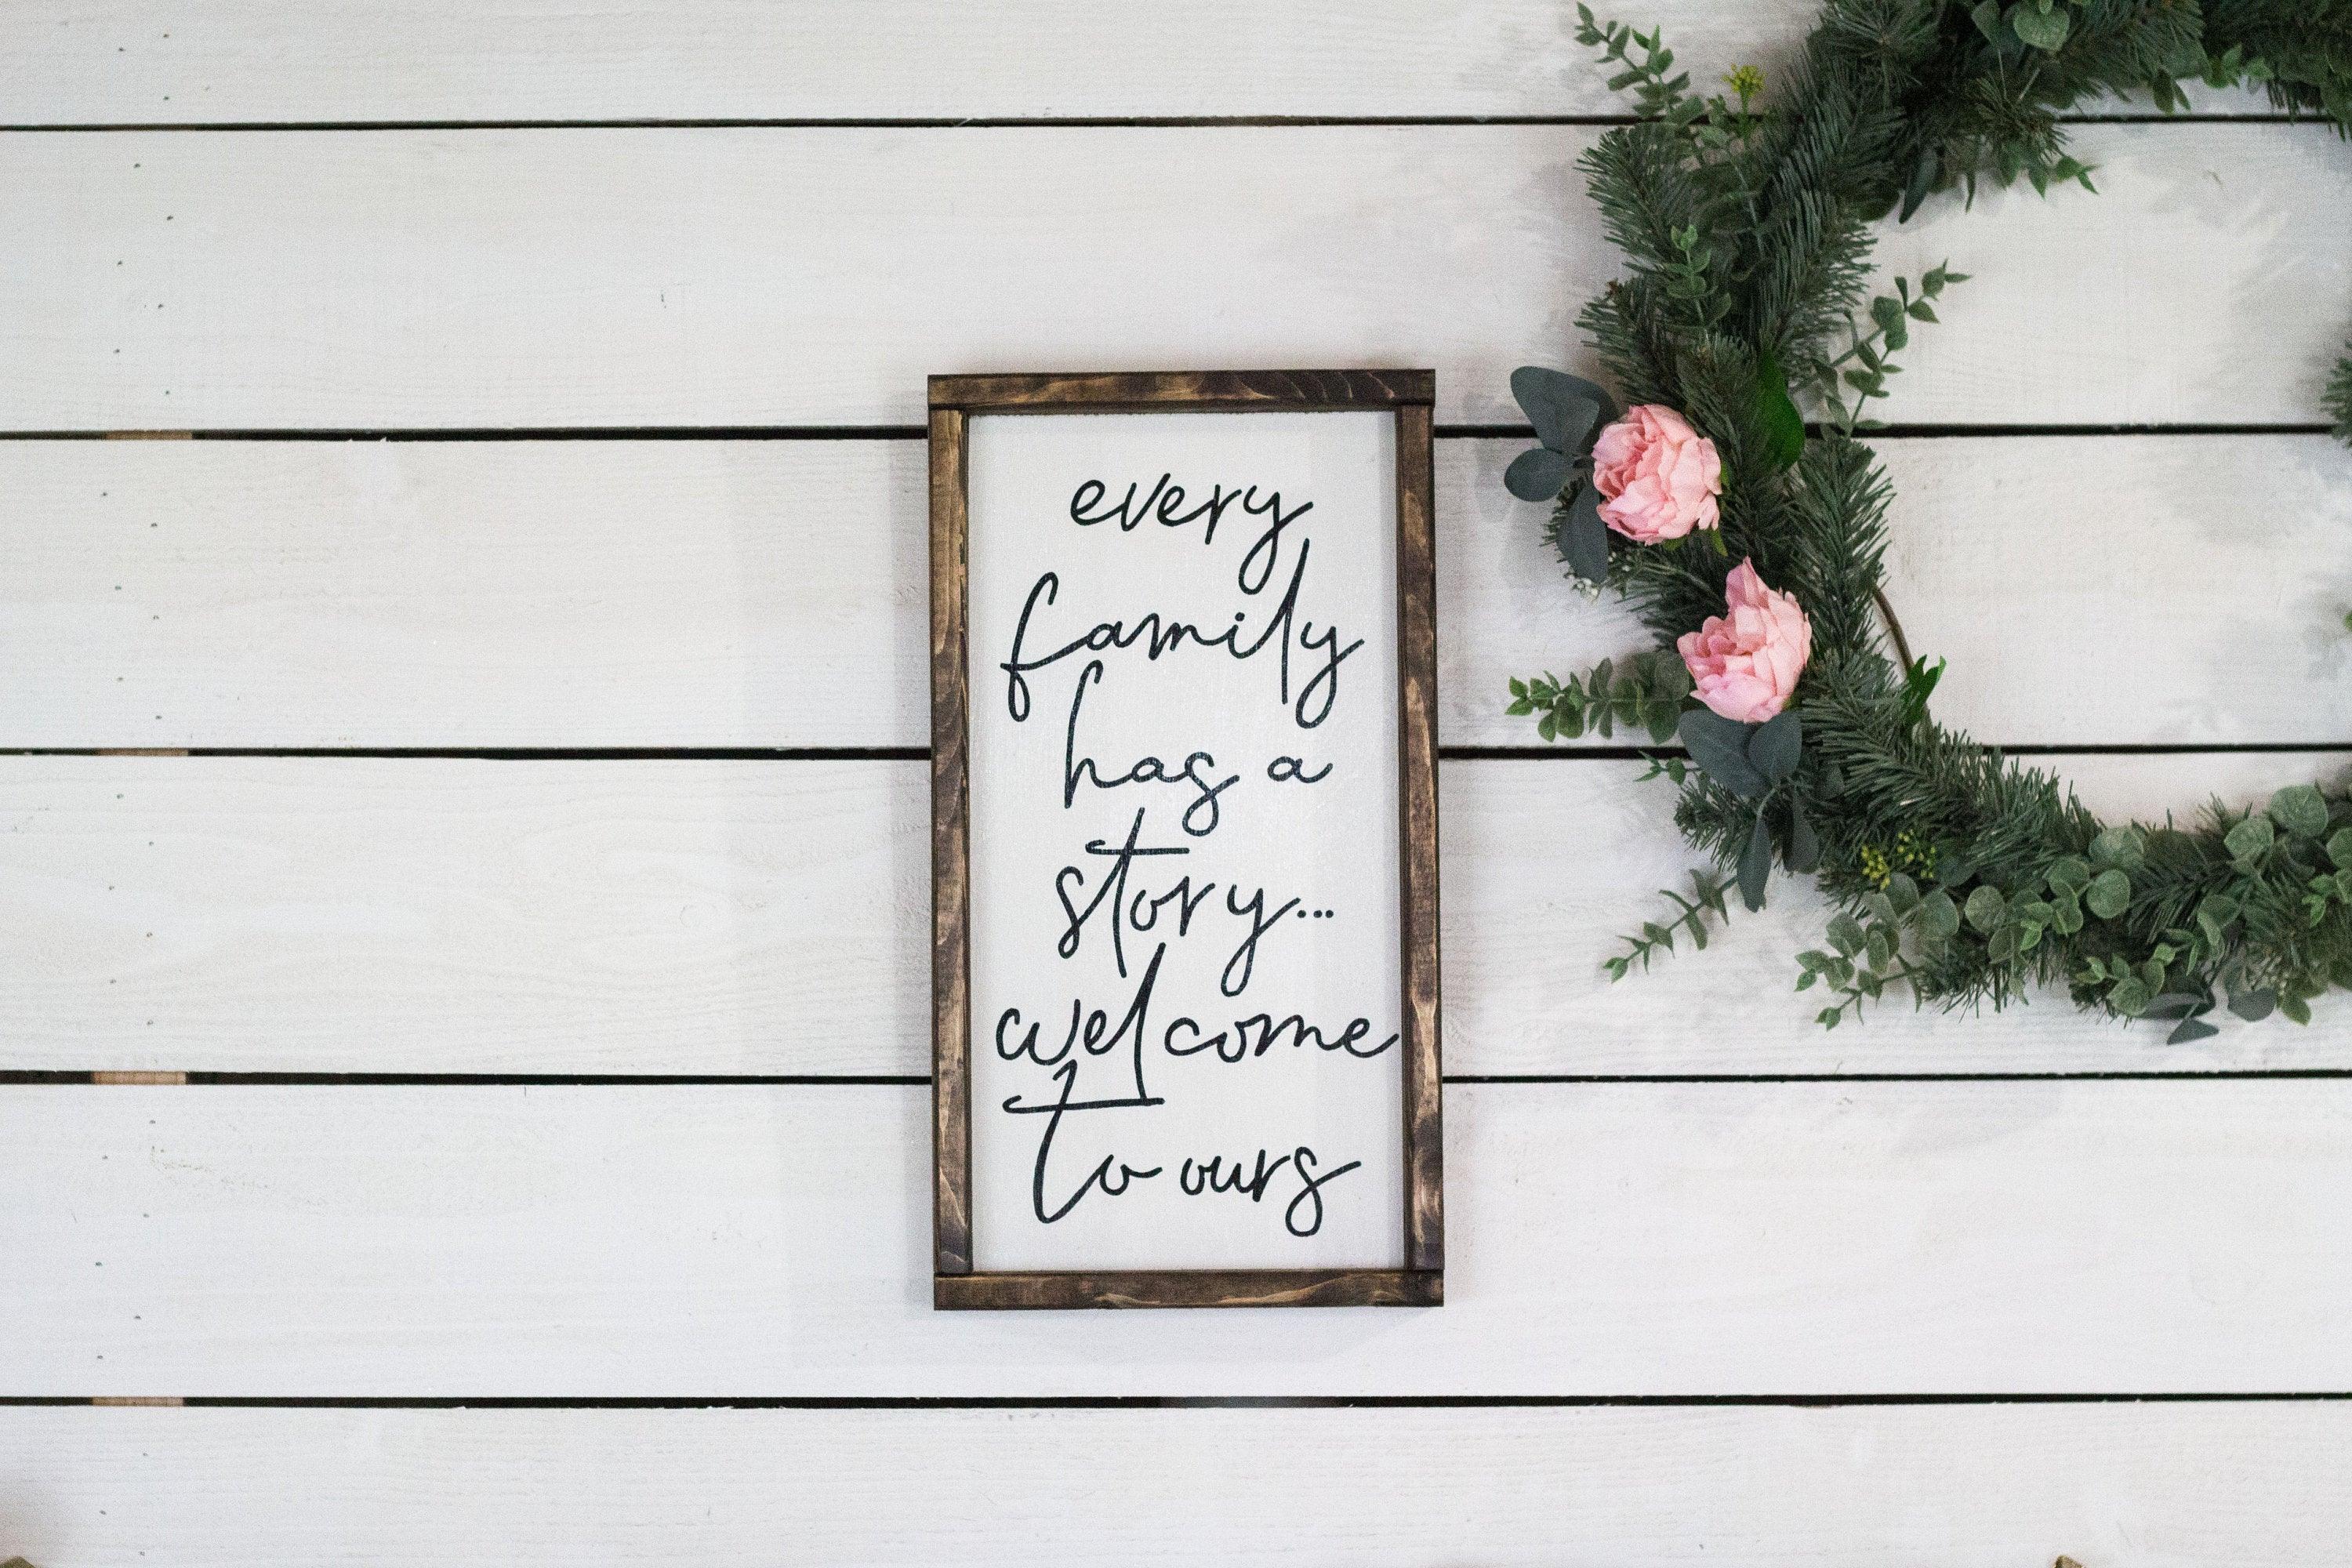 every
family
has a
story...
welcome
to ours